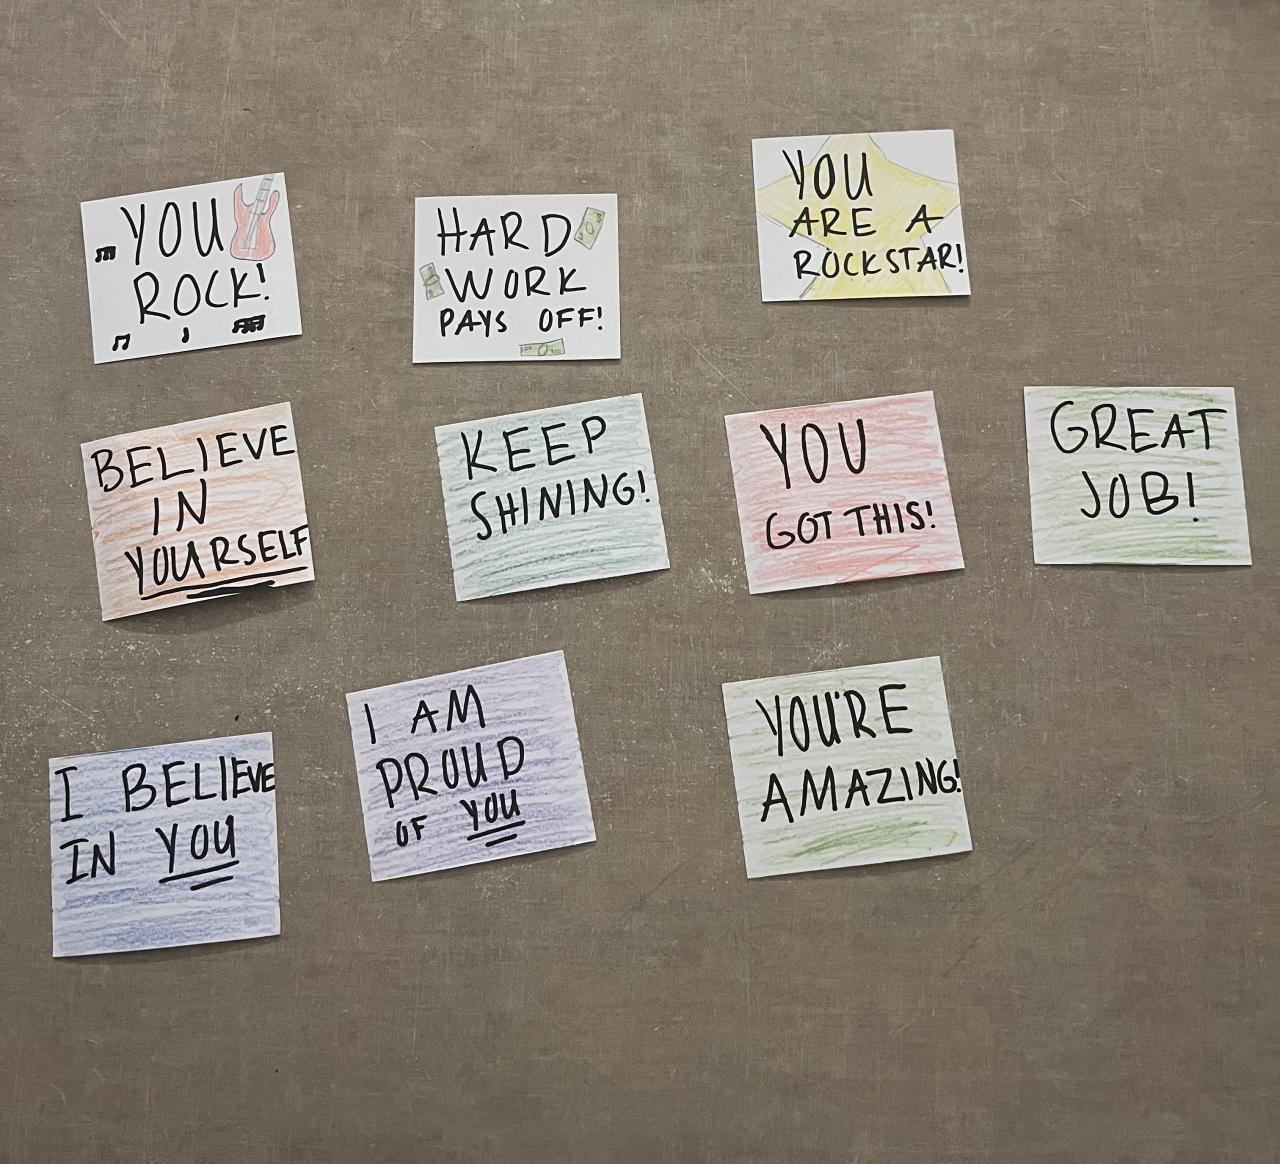 YOU
ROCK!
HARD
WORK
PAYS OFF!
YOU
ARE A
ROCKSTAR!
BELIEVE
IN
YOURSELF
KEEP
SHINING!
YOU
GOT THIS!
GREAT
JOB!
I BELIEVE
IN YOU
I AM
PROUD
OF YOU
YOU'RE
AMAZING!